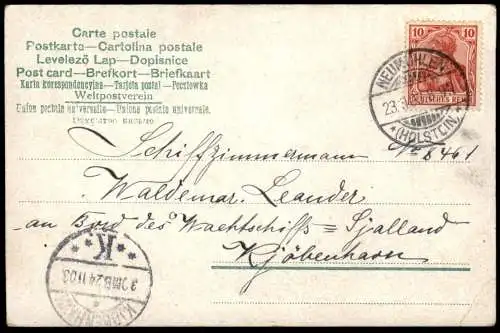 Carte postale
Postkarte—Cartolina postale
Levelező Lap—Dopisnice
Post card—Brefkort—Briefkaart
Karta korespondencyjna—Tarjeta postal—Почтовка
Weltpostverein
Union postale universelle—Unione postale universale.
10 10
DEUTSCHES REICH
NEUMÜHLEN
23.
* (HOLSTEIN)
Schiffzimmermann No 8461
Waldemar Leander
an Bord des Wachtschiffs Sjalland
Kjöbenhavn
K
3 OMB 24 11 03
KJØBENHAVN